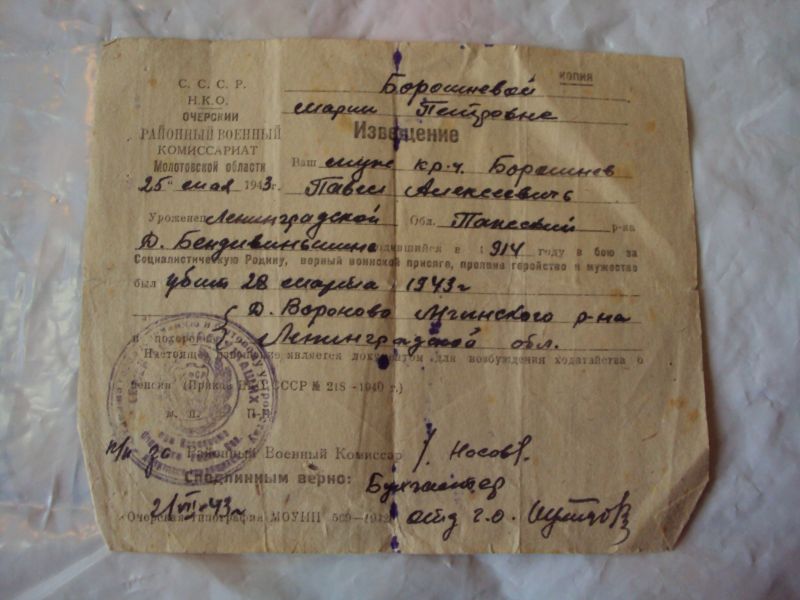 КОПИЯ
Борошневой
Марии Петровне
С. С. С. Р.
Н.К.О.
ОЧЕРСКИЙ
РАЙОННЫЙ ВОЕННЫЙ
КОМИССАРИАТ
Молотовской области
25 мая 1943 г.
Извещение
Ваш муж кр-ч. Борошнев
Павел Алексеевич
Уроженец Ленинградской Обл. р-на
Д. родившийся в 1914 году в бою за
Социалистическую Родину, верный воинской присяге, проявив геройство и мужество
был убит 28 марта 1943 г
Д. Вороново Мгинского р-на
и похоронен Ленинградской обл.
Настоящее извещение является документом для возбуждения ходатайства о
пенсии (Приказ НКО СССР № 218 -1940 г.)
м. п. П-П
п/п Районный Военный Комиссар / Носов /.
С подлинным верно: Бухгалтер
21/VII-43 г.
Очерская типография МОУПП 569—1942